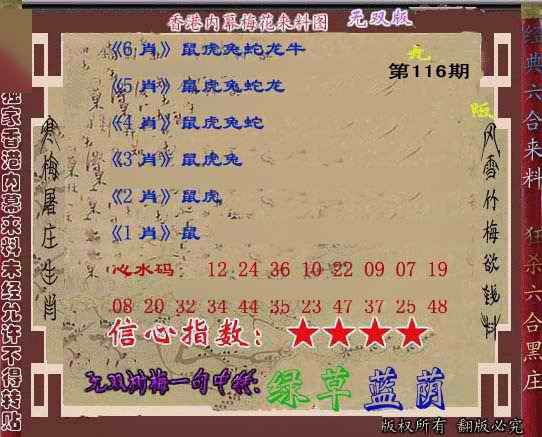 香港内幕梅花来料图 无双版
第116期
《6 肖》鼠虎兔蛇龙牛
《5 肖》鼠虎兔蛇龙
《4 肖》鼠虎兔蛇
《3 肖》鼠虎兔
《2 肖》鼠虎
《1 肖》鼠
心水码： 12 24 36 10 22 09 07 19
08 20 32 34 44 35 23 47 37 25 48
信心指数：★★★★
一句中特：绿草蓝荫
版权所有 翻版必究
独家香港内幕来料未经允许不得转贴
寒梅屠庄生肖
风雪竹梅欲钱料
经典六合来料 狂杀六合黑庄